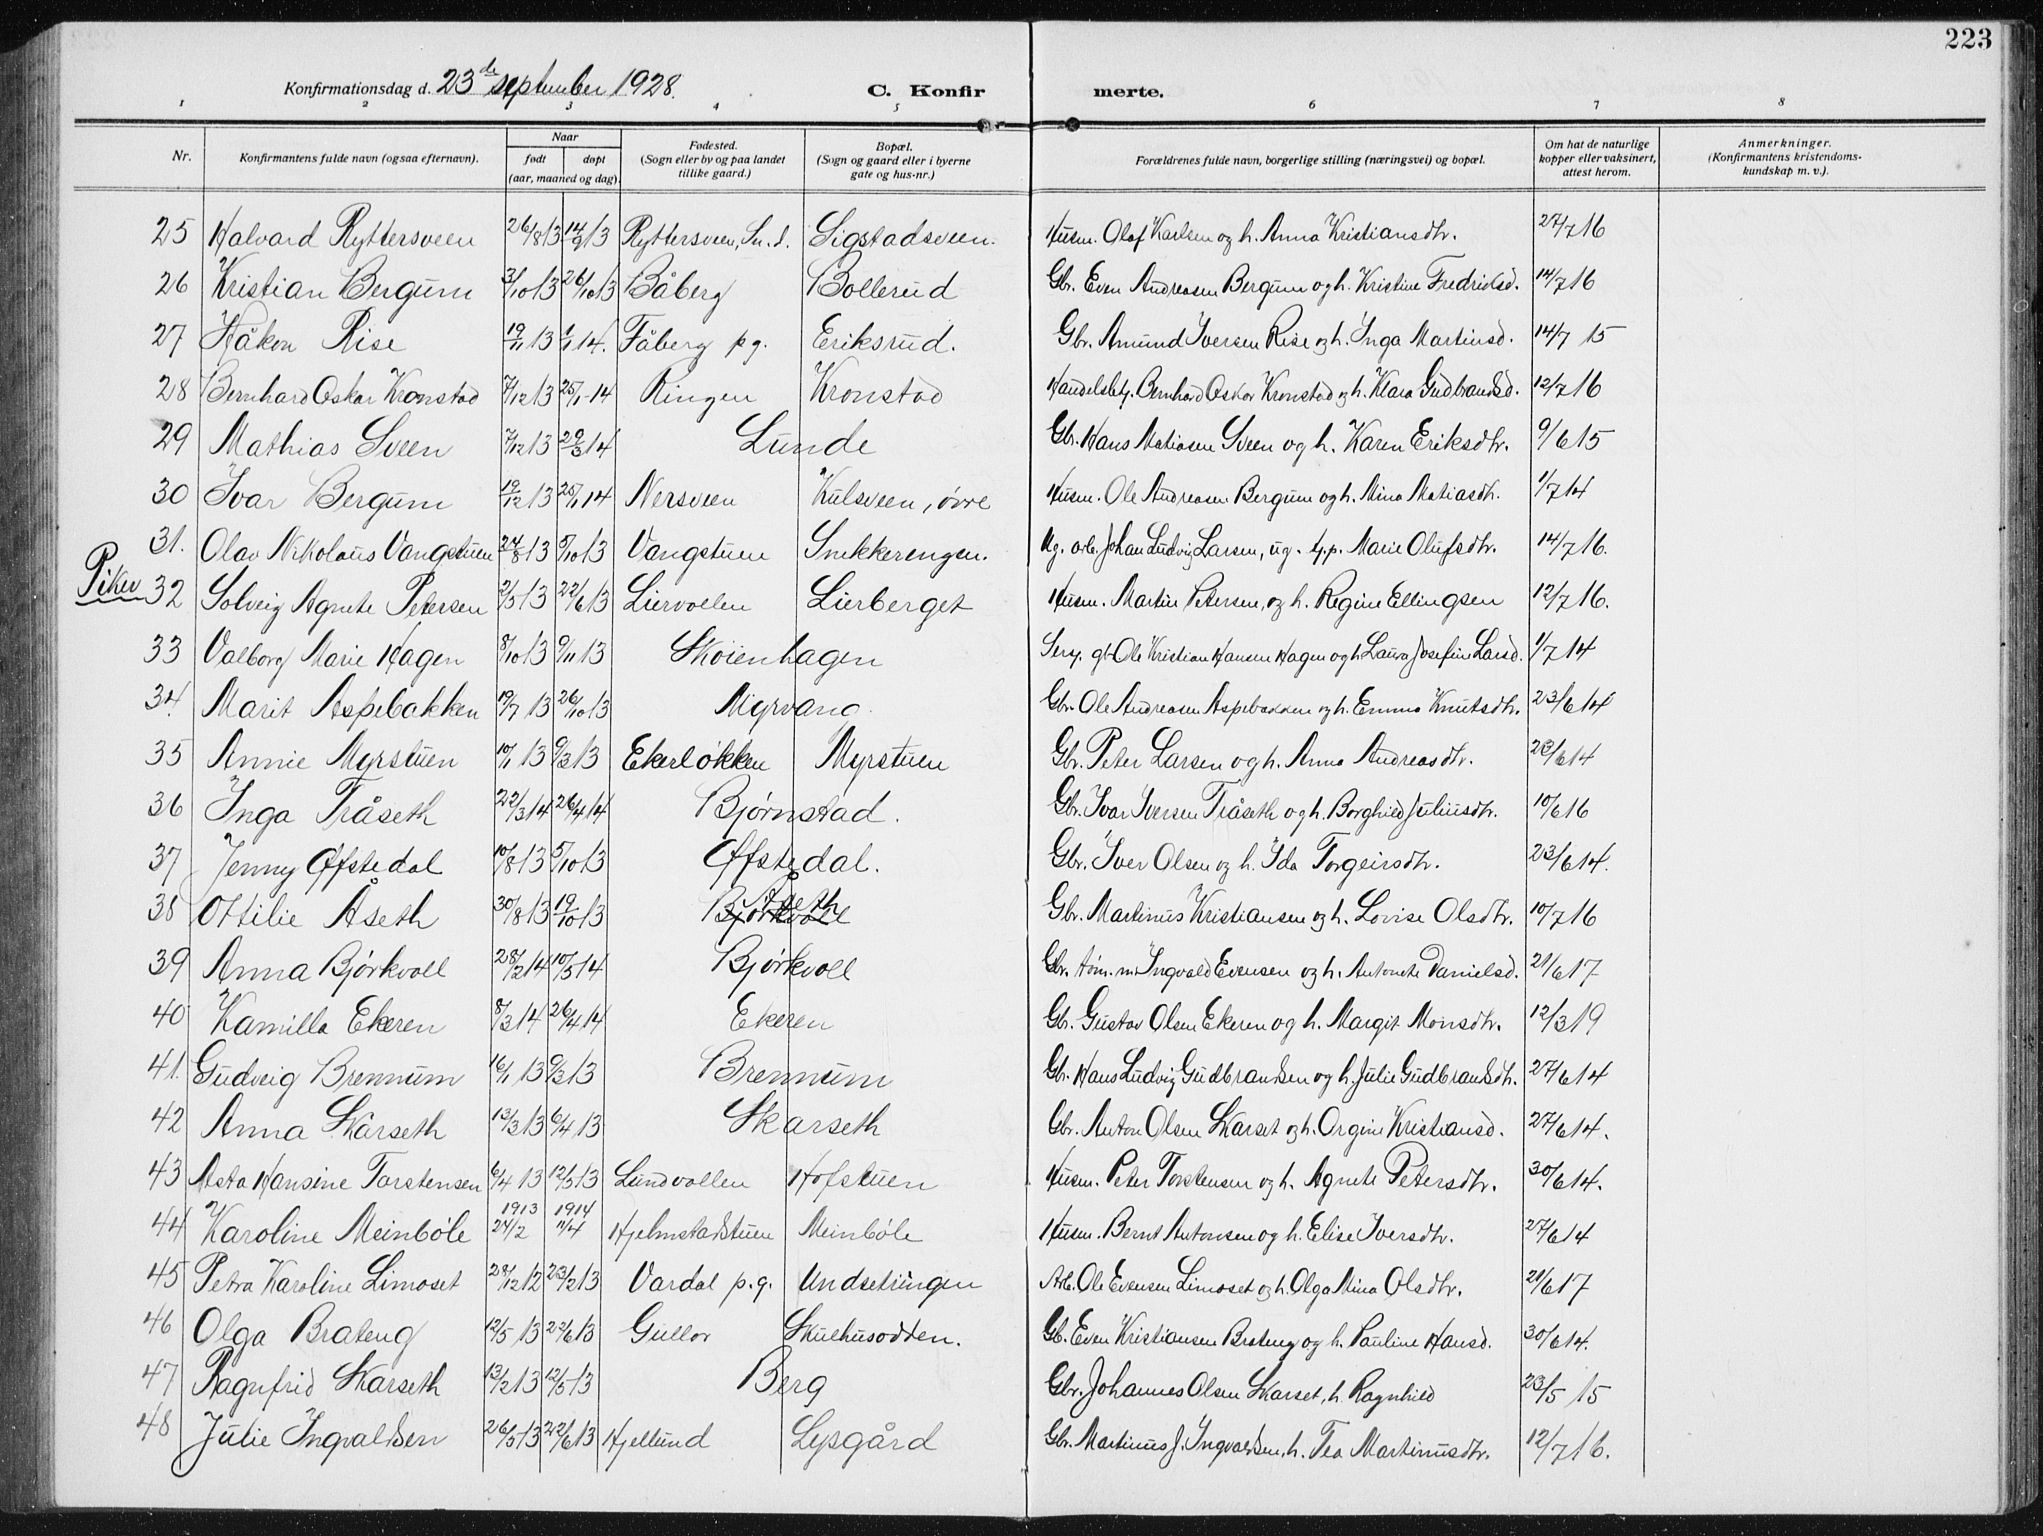 223
Konfirmationsdag d. 23de september 1928. C. Konfir merte.
1 2 3 4 5 6 7 8
Nr. Konfirmantens fulde navn (ogsaa efternavn). Naar født døpt (aar, maaned og dag). Fødested. (Sogn eller by og paa landet tillike gaard.) Bopæl. (Sogn og gaard eller i byerne gate og hus-nr.) Forældrenes fulde navn, borgerlige stilling (næringsvei) og bopæl. Om hat de naturlige kopper eller vaksinert, attest herom. Anmerkninger. (Konfirmantens kristendoms-kundskap m. v.).
25 Halvard Ryttersveen 26/8 13 14/9 13 Ryttersveen, Sn. d. Sigstadsveen. Husm. Olaf Karlsen og h. Anna Kristiansdtr. 27/7 16
26 Kristian Bergum 3/10 13 26/10 13 Båberg Bollerud Gbr. Even Andreasen Bergum og h. Kristine Fredriksd. 14/7 16
27 Håkon Rise 19/11 13 1/1 14. Fåberg pg. Eriksrud. Gbr. Amund Iversen Rise og h. Inga Martinsd. 14/7 15
28 Bernhard Oskar Kronstad 7/12 13 25/1-14 Ringen Kronstad Handelsbty. Bernhard Oskar Kronstad og h. Klara Gudbrandsd. 12/7 16
29 Mathias Sveen 7/12 13 29/3 14 Lunde Gbr. Hans Matiasen Sveen og h. Karen Eriksdtr. 9/6 15
30 Ivar Bergum 19/12 13 25/1 14 Nersveen Kulsveen, øvre Husm. Ole Andreasen Bergum og h. Mina Matiasdtr. 1/7 14
31. Olav Nikolaus Vangstuen 24/8 13 5/10 13 Vangstuen Snekkerengen. Ug. arb. Johan Ludvig Larsen, ug. tj.p. Marie Olufsdtr. 14/7 16.
Piker 32 Solveig Agnete Petersen 2/5 13 22/6 13 Liervollen Lierberget Husm. Martin Petersen, og h. Regine Ellingsen 12/7 16.
33 Valborg Marie Hagen 8/10 13 9/11 13 Skøienhagen Serg. gb Ole Kristian Hansen Hagen og h Laura Josefine Larsd. 1/7 14
34. Marit Aspebakken 19/7 13 26/10 13 Myrvang. Gbr. Ole Andreasen Aspebakken og h. Emma Knutsdtr. 23/6 14
35 Annie Myrstuen 10/1 13 9/3 13 Ekerløkken Myrstuen Gbr. Peter Larsen og h. Anna Andreasdtr. 23/6 14
36 Inga Tråseth 22/3 14 26/4 14 Bjørnstad. Gbr. Ivar Iversen Tråseth og h. Borghild Juliusdtr. 10/6 16
37 Jenny Offstedal 10/8 13 5/10 13 Offstedal. Gbr. Iver Olsen og h. Ida Torgeirsdtr. 23/6 14.
38 Ottilie Åseth 30/8 13 19/10 13 Bjørkvoll Åseth Gbr. Martinus Kristiansen og h. Lovise Olsdtr. 10/7 16
39 Anna Bjørkvoll 28/2 14 10/5 14 Bjørkvoll Gbr. tøm.m. Ingvald Evensen og h. Antonete Danielsd. 21/6 17
40 Kamilla Ekeren 8/3 14 26/4 14 Ekeren Gb. Gustav Olsen Ekeren og h. Margit Monsdtr. 12/3 19
41. Gudveig Brennum 16/1 13 9/3 13 Brennum Gb. Hans Ludvig Gudbrandsen og h. Julie Gudbrandsdtr. 27/6 14
42 Anna Skarseth 13/3 13 6/4 13 Skarseth Gbr. Anton Olsen Skarset og h. Orgine Kristiansd. 27/6 14.
43 Asta Hansine Torstensen 6/4 13 12/5 13 Lundvollen Hofstuen Husm. Peter Torstensen og h. Agnete Petersdtr. 30/6 14.
44 Karoline Meinbøle 1913 24/2 1914 11/4 Hjelmstadstuen Meinbøle Husm. Bernt Antonsen og h. Elise Iversdtr. 27/6 14
45 Petra Karoline Limoset 28/12 12 23/2 13 Vardal p.g. Undsetringen Arb. Ole Evensen Limoset og h. Olga Mina Olsdtr. 21/6 17
46 Olga Brateng 12/5 13 22/6 13 Gullor Skulhusodden. Gb. Even Kristiansen Brateng og h. Pauline Hansd. 30/6 14.
47 Ragnfrid Skarseth 13/2 13 12/5 13 Berg Gbr. Johannes Olsen Skarset, h. Ragnhild 23/5 15
48 Julie Ingvaldsen 26/5 13 22/6 13 Hjellund Lysgård Gbr. Martinus J. Ingvaldsen, h. Tea Martinusdtr. 12/7 16.